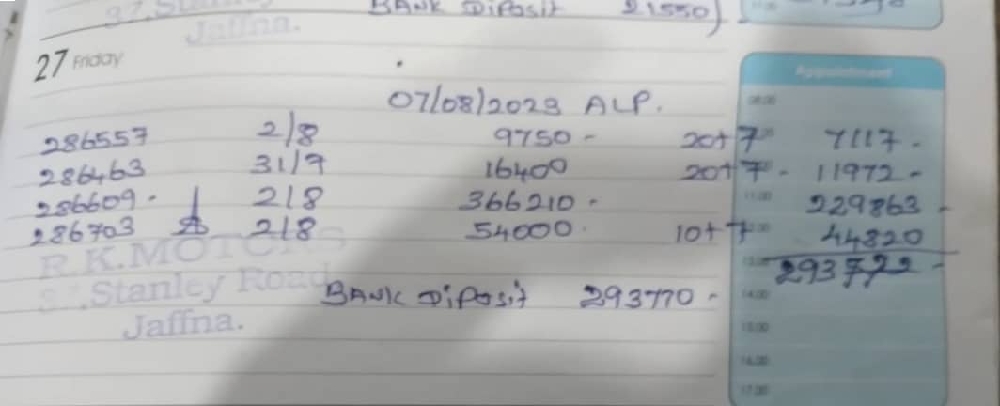 BANK DiPosit 21550)
Jaffna.
27 Friday
Appointment
07/08/2023 ALP.
286557 2/8 9750 - 20+7 7117 -
286463 31/7 16400 20+7 - 11972 -
286609 - 2/8 366210 - 229863 -
286703 2/8 54000 - 10+7 44820
R.K.MOTORS
293772 -
Stanley Road
BANK DiPosit 293770 -
14.00
Jaffna.
15.00
16.00
17.00